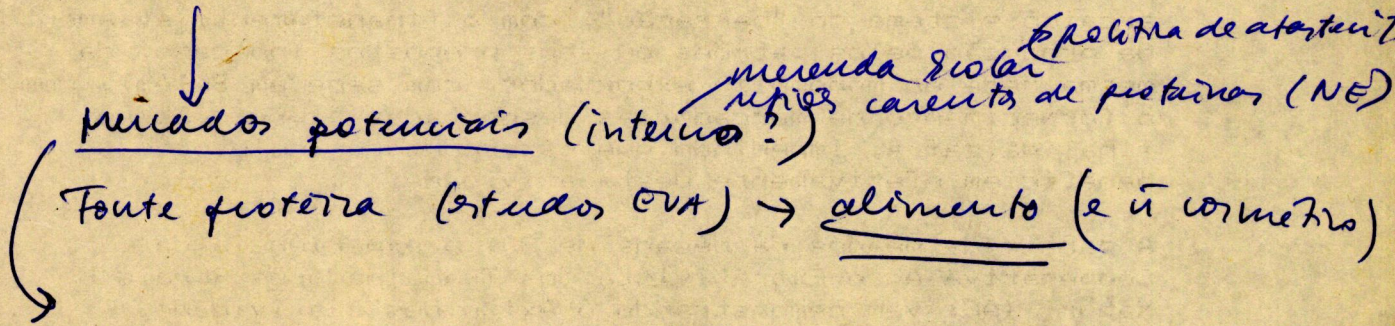 política de
merenda escolar
regiões carentes de proteínas (NE)
mercados potenciais (internos?)
Fonte protéica (estudos EVA) → alimento (e ñ cosmético)